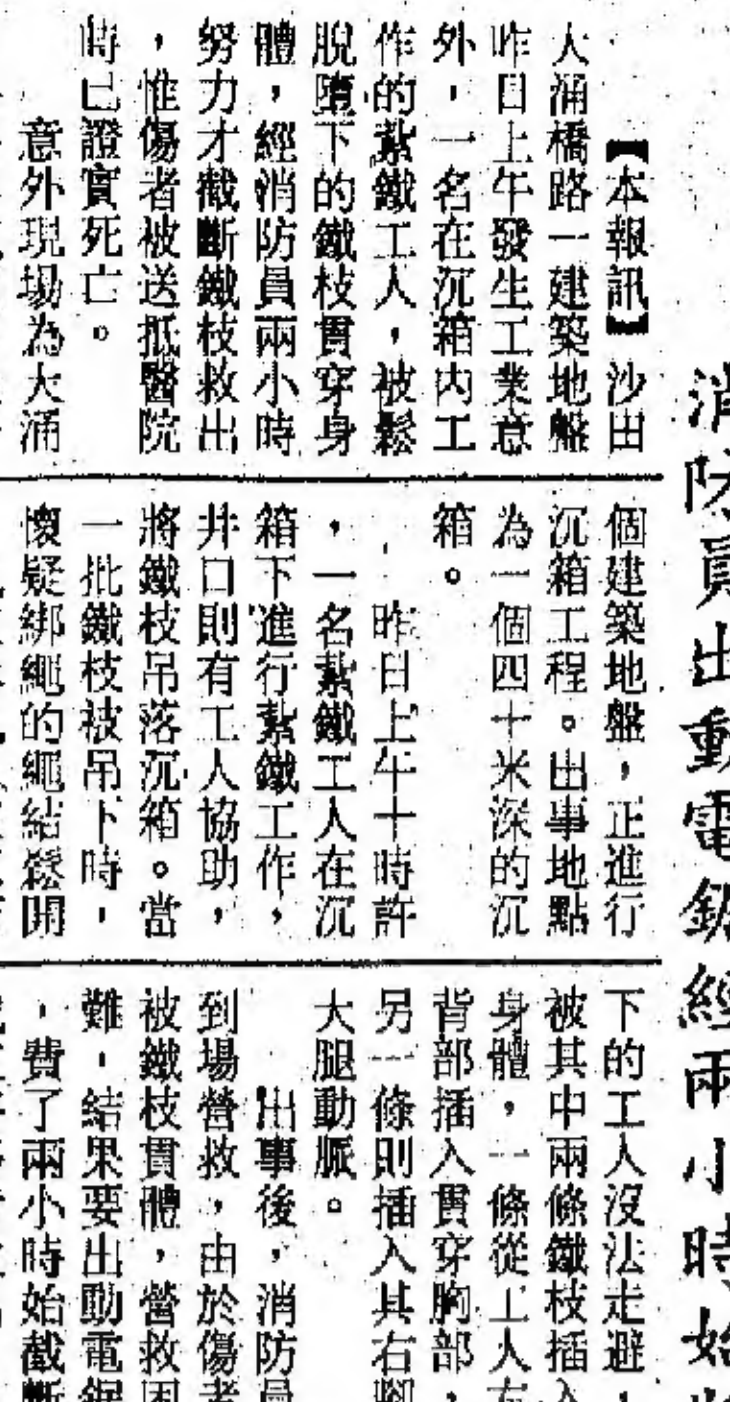 消防員出動電鋸經兩小時始
【本報訊】沙田
大涌橋路一建築地盤
昨日上午發生工業意
外，一名在沉箱內工
作的紮鐵工人，被鬆
脫墮下的鐵枝貫穿身
體，經消防員兩小時
努力才截斷鐵枝救出
，惟傷者被送抵醫院
時已證實死亡。
意外現場為大涌
個建築地盤，正進行
沉箱工程。出事地點
為一個四十米深的沉
箱。
昨日上午十時許
，一名紮鐵工人在沉
箱下進行紮鐵工作，
井口則有工人協助，
將鐵枝吊落沉箱。當
一批鐵枝被吊下時，
懷疑綁繩的繩結鬆開
下的工人沒法走避，
被其中兩條鐵枝插入
身體，一條從工人左
背部插入貫穿胸部，
另一條則插入其右腳
大腿動脈。
出事後，消防員
到場營救，由於傷者
被鐵枝貫體，營救困
難，結果要出動電鋸
，費了兩小時始截斷